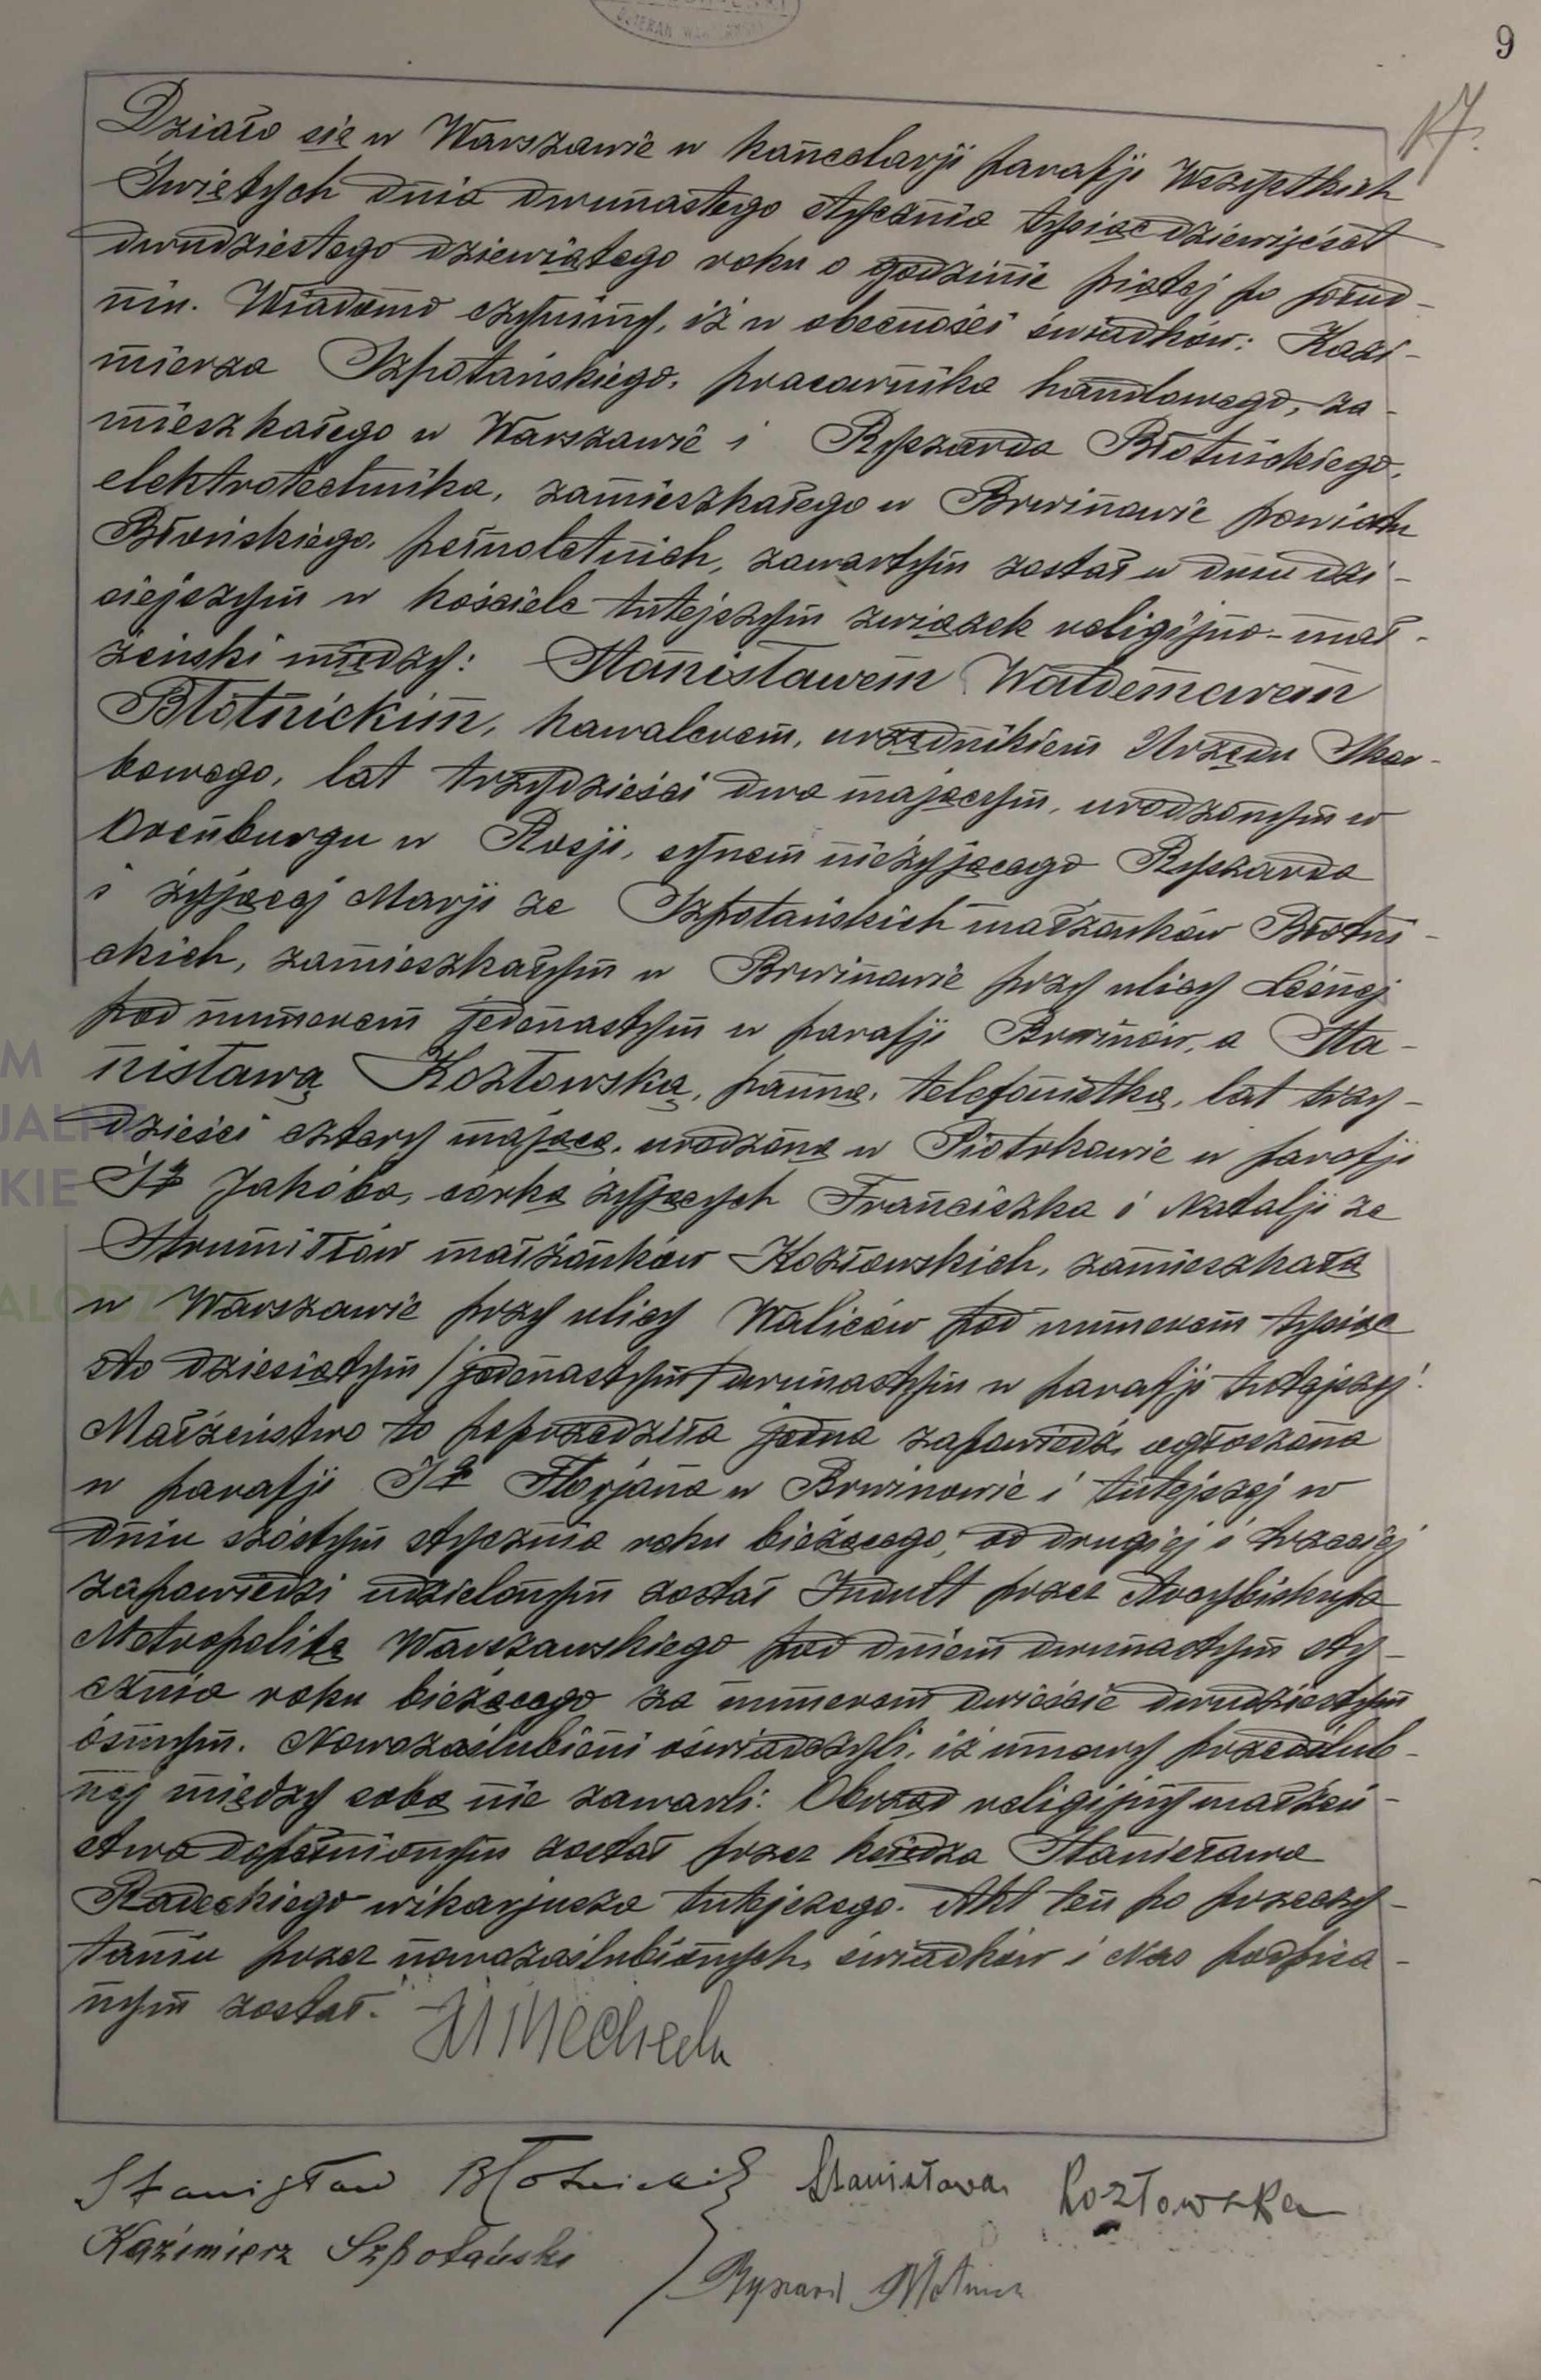 9
17.
Działo się w Warszawie w kancelarji parafji Wszystkich
Świętych dnia dwunastego stycznia tysiąc dziewięćset
dwudziestego dziewiątego roku o godzinie piątej po połud-
niu. Wiadomo czynimy, iż w obecności świadków: Kazi-
mierza Szpotańskiego, pracownika handlowego, za-
mieszkałego w Warszawie i Ryszarda Błotnickiego,
elektrotechnika, zamieszkałego w Brwinowie powiatu
Błońskiego, pełnoletnich, zawartym został w dniu dzi-
siejszym w kościele tutejszym związek religijno-mał-
żeński między: Stanisławem Waldemarem
Błotnickim, kawalerem, urzędnikiem Urzędu Skar-
bowego, lat trzydzieści dwa mającym, urodzonym w
Orenburgu w Rosji, synem nieżyjącego Ryszarda
i żyjącej Marji ze Szpotańskich małżonków Błotni-
ckich, zamieszkałym w Brwinowie przy ulicy Leśnej
pod numerem jedenastym w parafji Brwinów, a Sta-
nisławą Kozłowską, panną, telefonistką, lat trzy-
dzieści cztery mającą, urodzoną w Piotrkowie w parafji
Ś-go Jakóba, córką żyjących Franciszka i Natalji ze
Strumiłłów małżonków Kozłowskich, zamieszkałą
w Warszawie przy ulicy Waliców pod numerem tysiąc
sto dziesiątym /jedenastym/ dwunastym w parafji tutejszej.
Małżeństwo to poprzedziła jedna zapowiedź, ogłoszona
w parafji Ś-go Florjana w Brwinowie i tutejszej w
dniu szóstym stycznia roku bieżącego, od drugiej i trzeciej
zapowiedzi udzielonym został Indult przez Arcybiskupa
Metropolitę Warszawskiego pod dniem dwunastym sty-
cznia roku bieżącego za numerem dwieście dwudziestym
ósmym. Nowozaślubieni oświadczyli, iż umowy przedślub-
nej między sobą nie zawarli. Obrząd religijny małżeń-
stwa dopełnionym został przez księdza Stanisława
Radeckiego wikarjusza tutejszego. Akt ten po przeczy-
taniu przez nowozaślubionych, świadków i Nas podpisa-
nym został.
Stanisław Błotnicki Stanisława Kozłowska
Kazimierz Szpotański
Ryszard